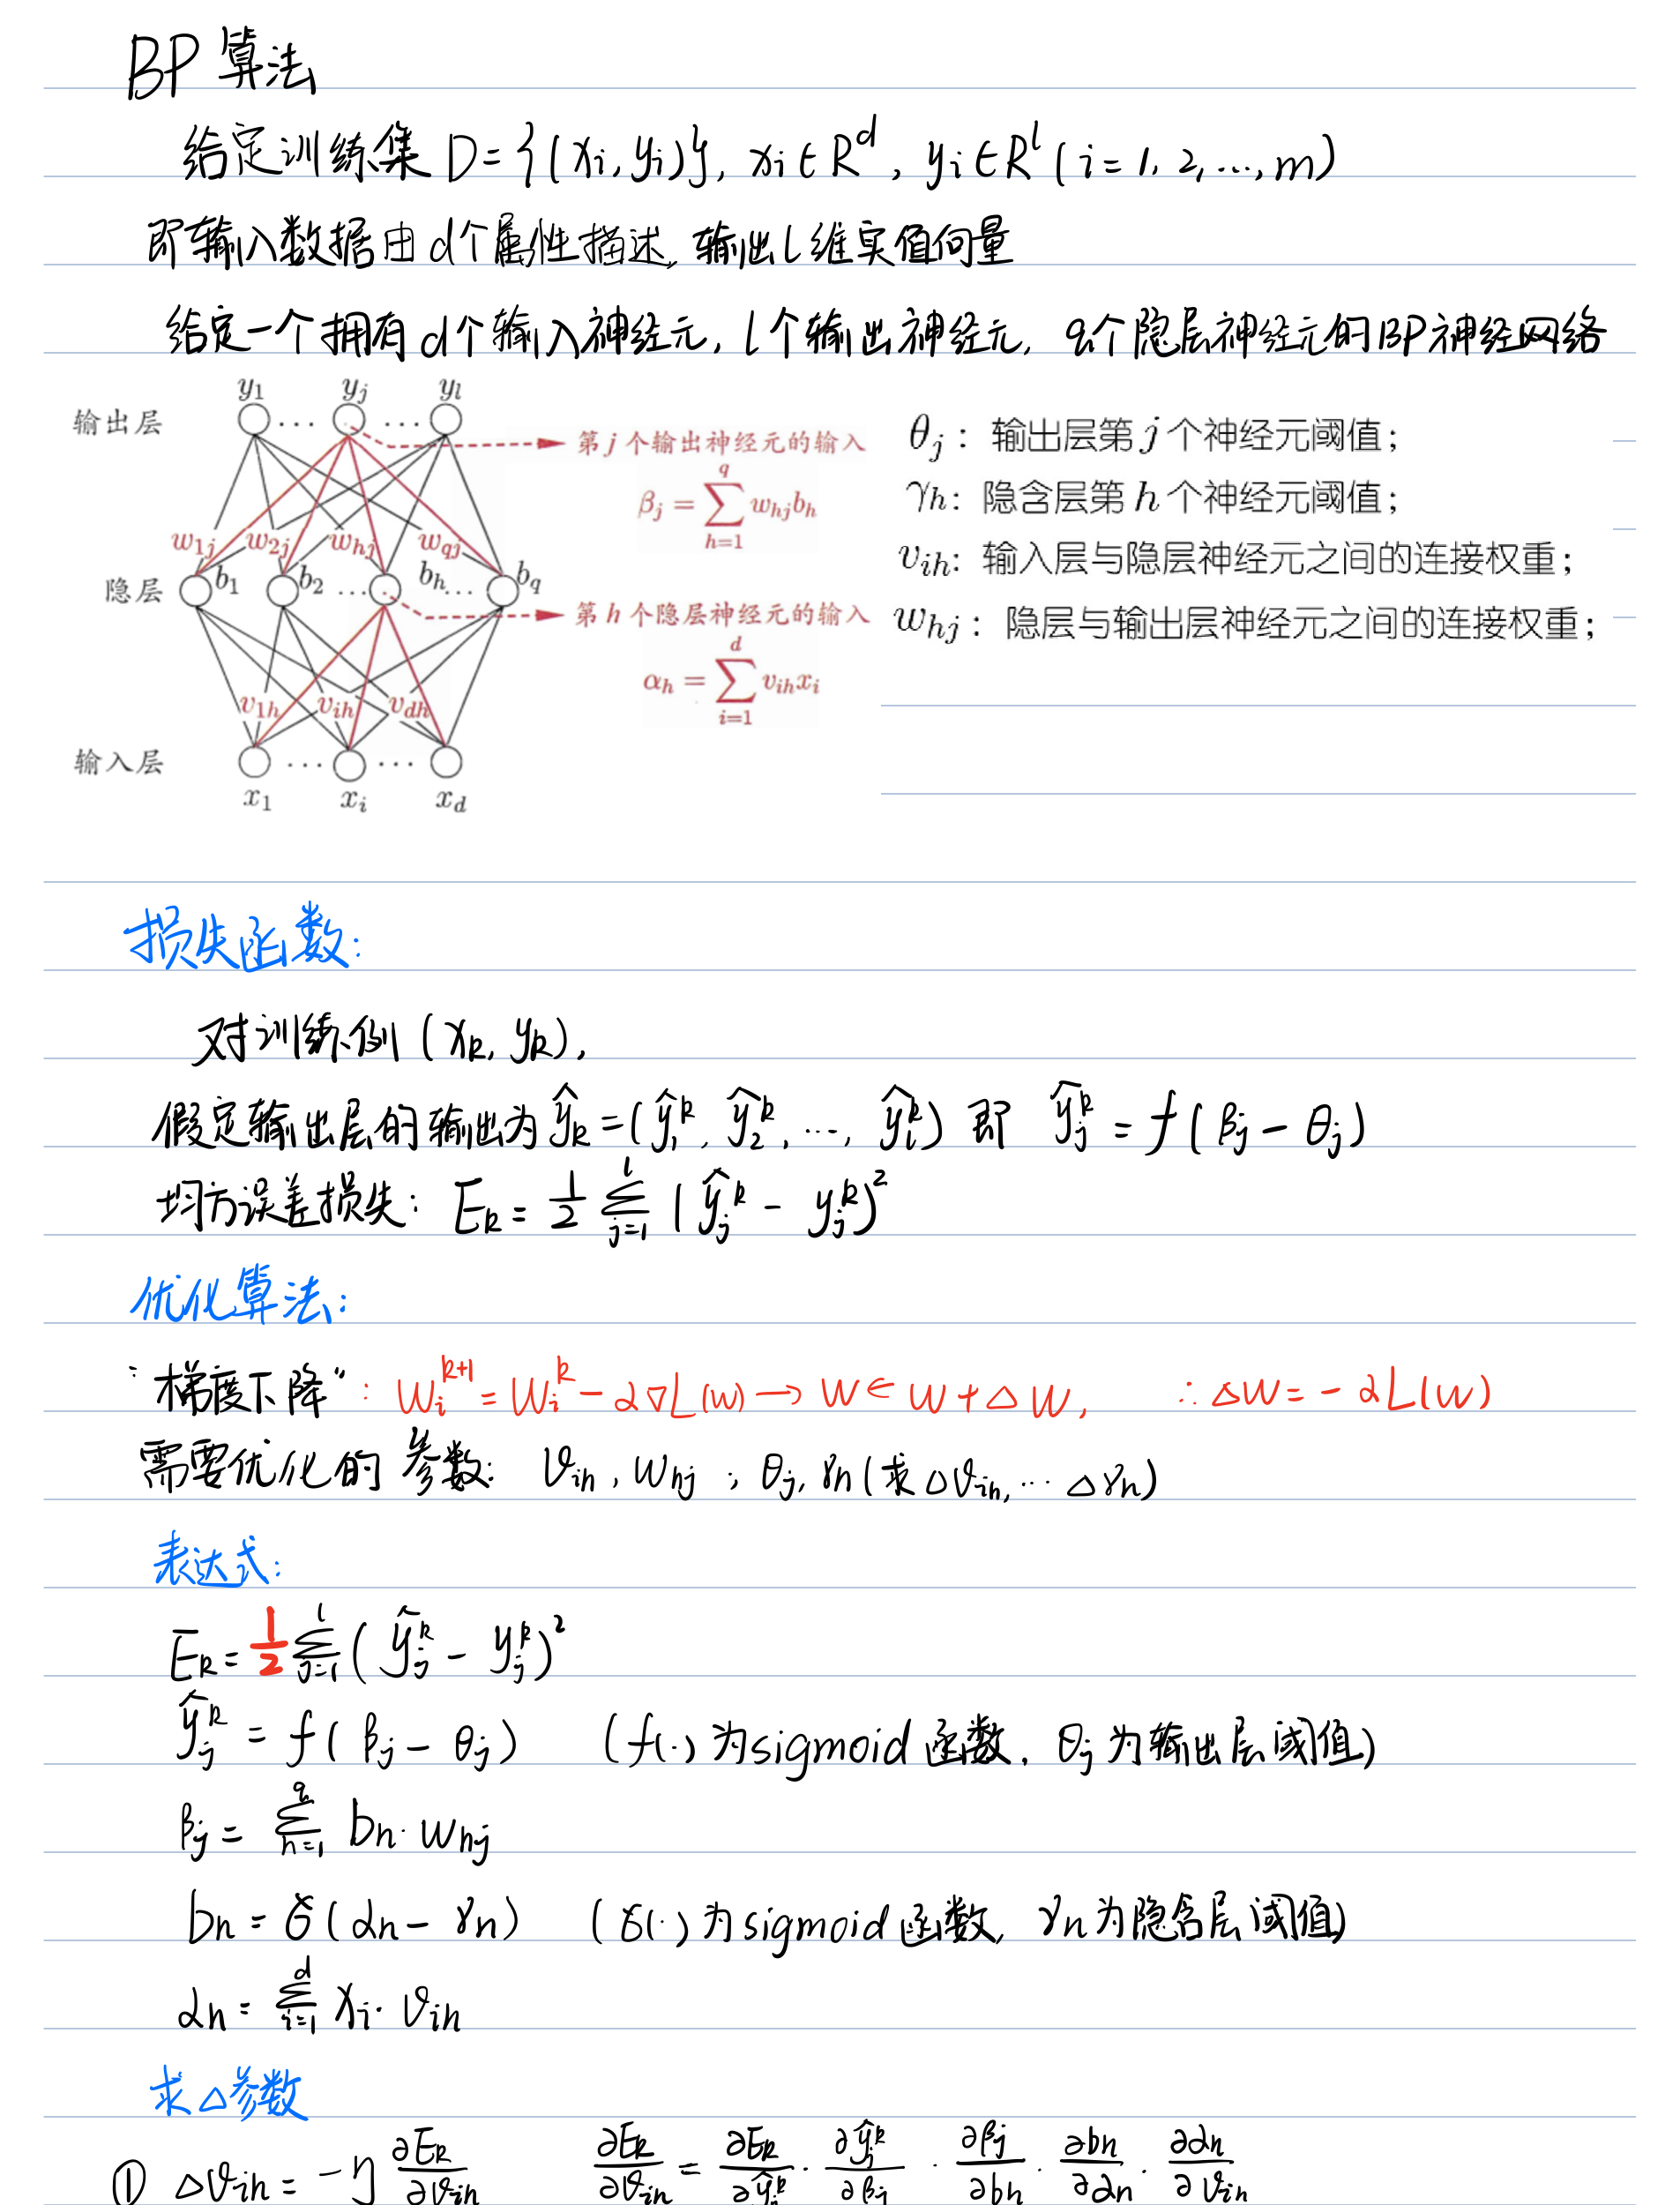 BP 算法
给定训练集 D={(xi, yi)}, xi∈R^d, yi∈R^l (i=1, 2, ..., m)
即输入数据由 d个属性描述, 输出l维实值向量
给定一个拥有 d个输入神经元, l个输出神经元, q个隐层神经元的BP神经网络
y1 yj yl
输出层 ... ...
第 j 个输出神经元的输入
βj = ∑_{h=1}^{q} whj bh
w1j w2j whj wqj
隐层 b1 b2 ... bh... bq
第 h 个隐层神经元的输入
αh = ∑_{i=1}^{d} vih xi
v1h vih vdh
输入层 ... ...
x1 xi xd
θj: 输出层第 j 个神经元阈值;
γh: 隐含层第 h 个神经元阈值;
vih: 输入层与隐层神经元之间的连接权重;
whj: 隐层与输出层神经元之间的连接权重;
损失函数:
对训练例 (xk, yk),
假定输出层的输出为 ŷk=(ŷ1^k, ŷ2^k, ..., ŷl^k) 即 ŷj^k = f(βj - θj)
均方误差损失: Ek = 1/2 ∑_{j=1}^{l} (ŷj^k - yj^k)²
优化算法:
“梯度下降”: Wi^{k+1} = Wi^k - α∇L(w) → W ← W + ΔW, ∴ ΔW = - αL(w)
需要优化的 参数: vih, whj, θj, γh (求Δvih, ... Δγh)
表达式:
Ek = 1/2 ∑_{j=1}^{l} (ŷj^k - yj^k)²
ŷj^k = f(βj - θj) (f(·) 为sigmoid 函数, θj 为输出层阈值)
βj = ∑_{h=1}^{q} bh · whj
bh = δ(αh - γh) (δ(·) 为sigmoid 函数, γh为隐含层阈值)
αh = ∑_{i=1}^{d} xi · vih
求Δ参数
① Δvih = -η ∂Ek/∂vih ∂Ek/∂vih = ∂Ek/∂ŷj^k · ∂ŷj^k/∂βj · ∂βj/∂bh · ∂bh/∂αh · ∂αh/∂vih